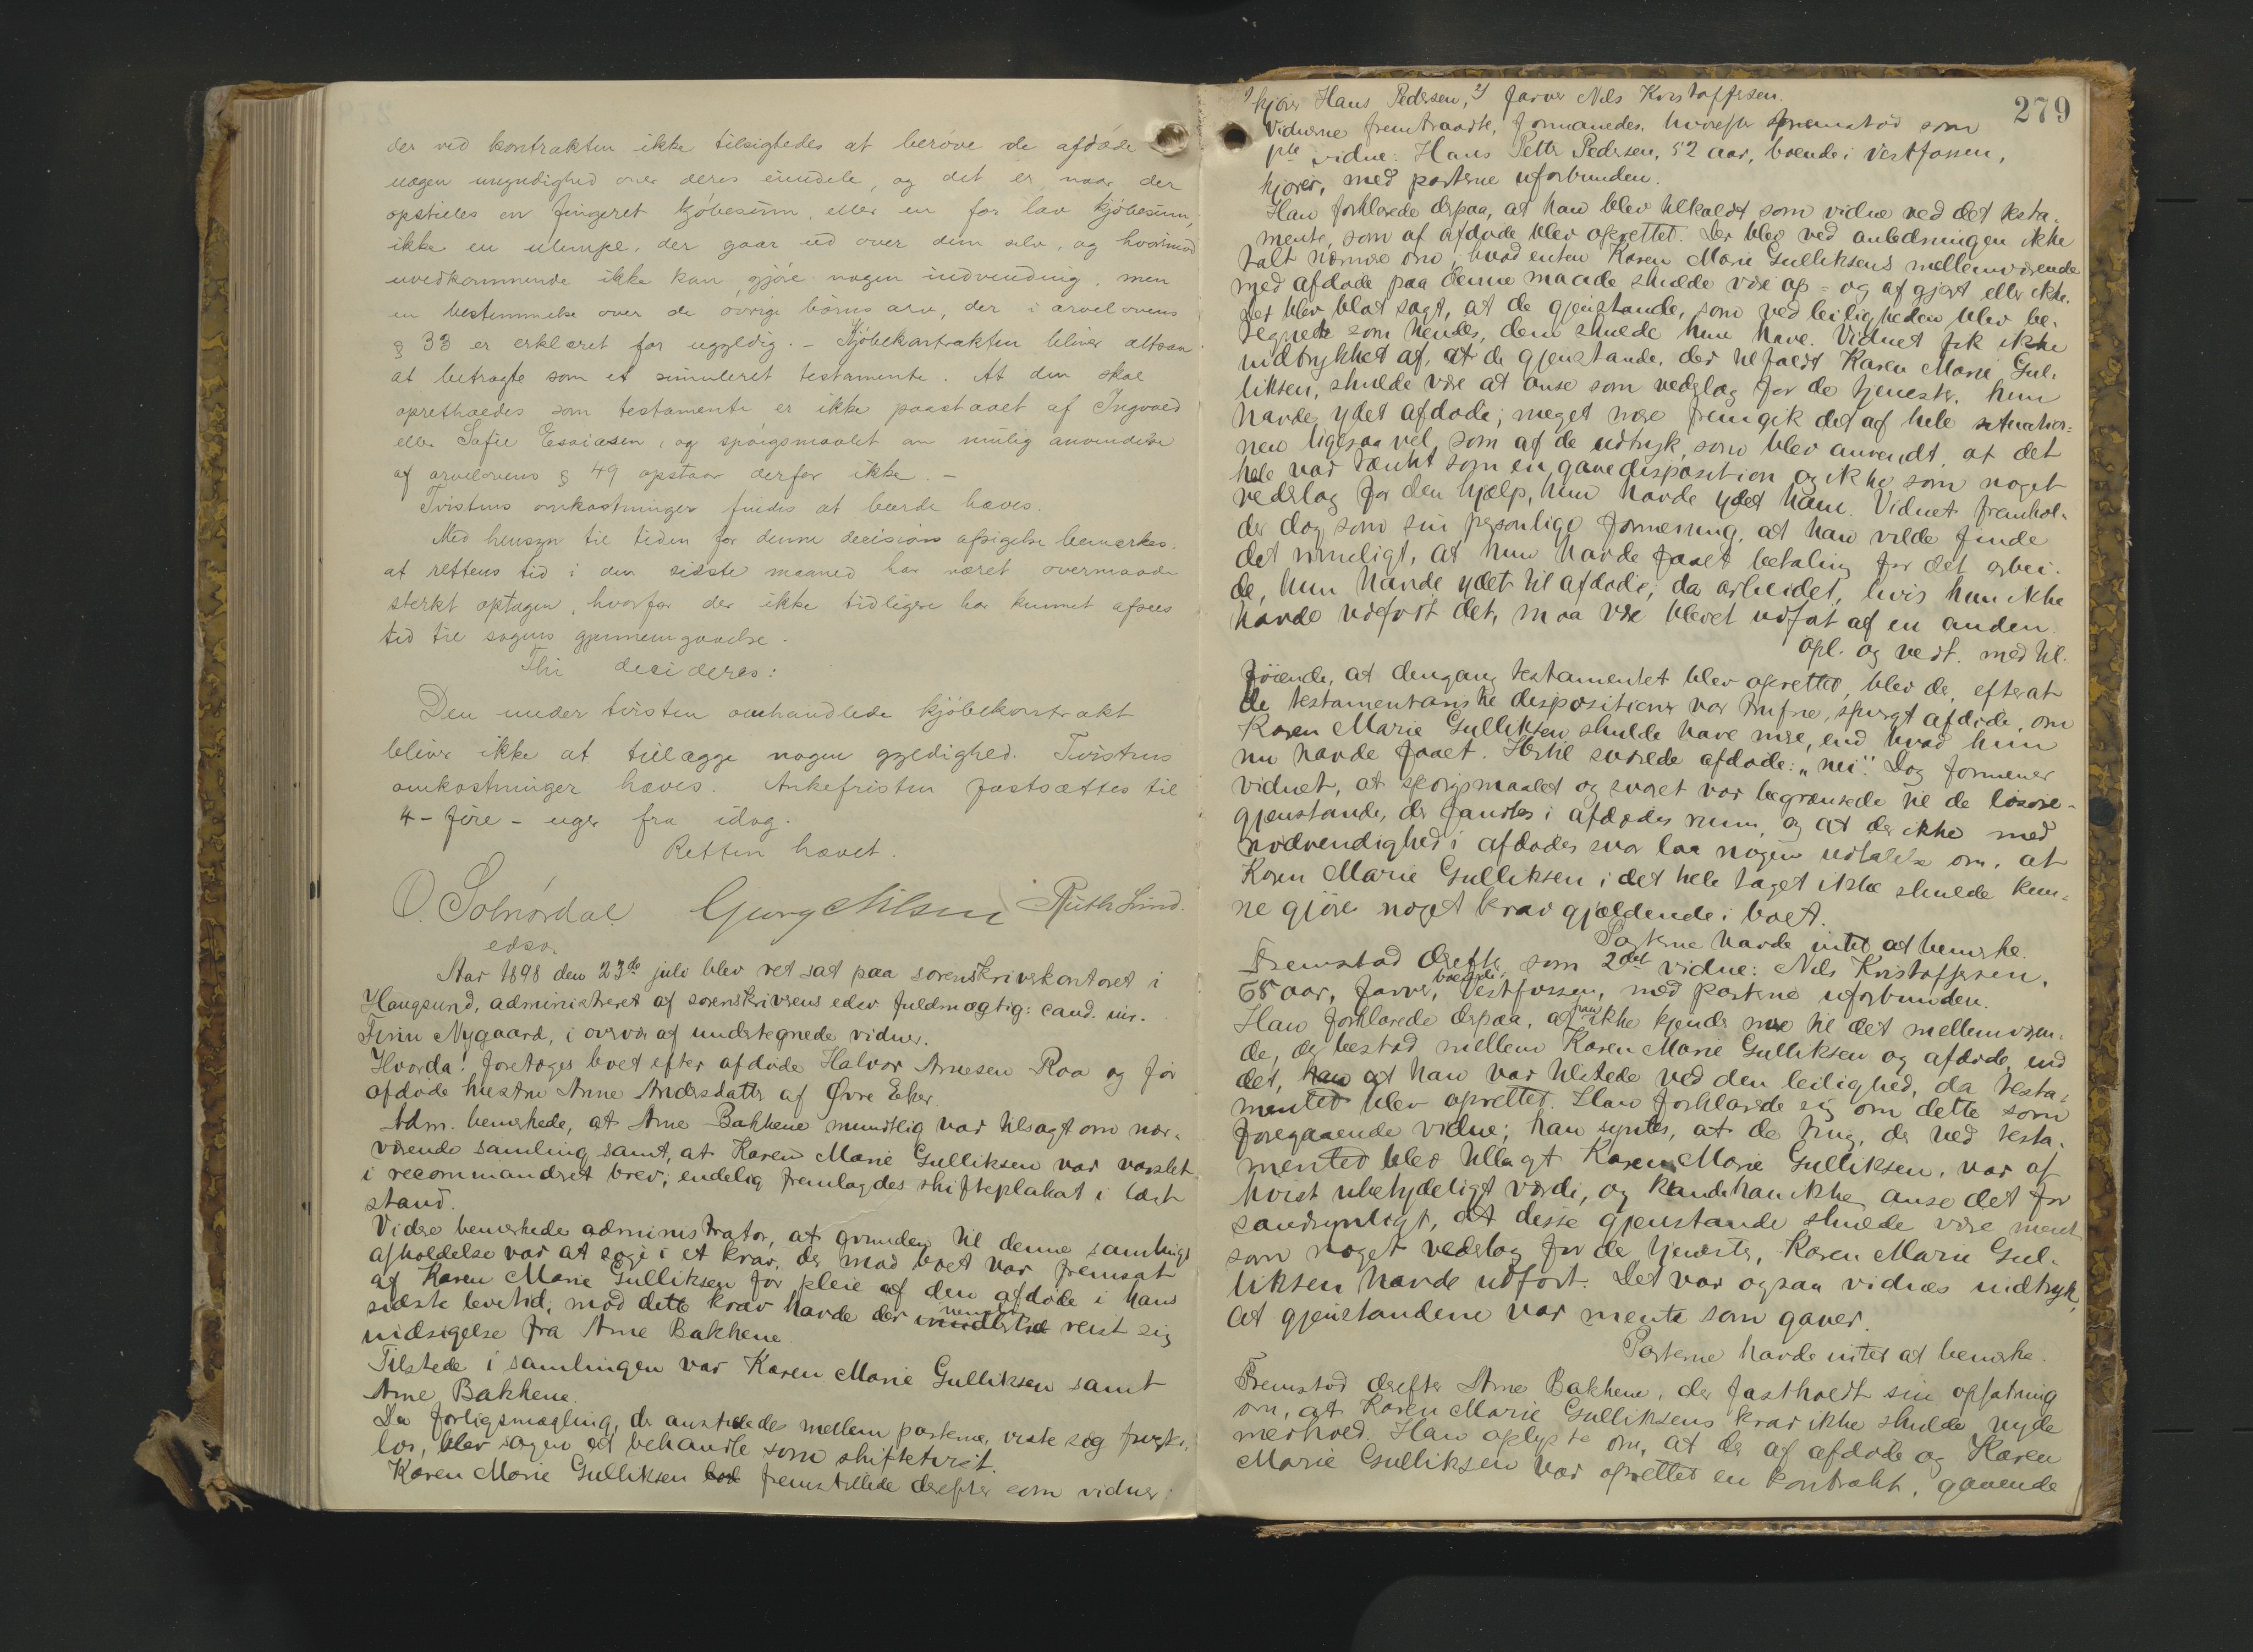 der ved kontrakten ikke tilsigtedes at berøve de afdøde
nogen myndighed over deres eiendele, og det er, naar der
opstilles en fingeret kjøbesum, eller en for lav kjøbesum,
ikke en ulempe, der gaar ud over dem selv, og hvorimod
uvedkommende ikke kan gjøre nogen indvending, men
en bestemmelse over de øvrige børns arv, der i arvelovens
§ 33 er erklæret for ugyldig. – Kjøbekontrakten bliver altsaa
at betragte som et simuleret testamente. At den skal
opretholdes som testamente er ikke paastaaet af Ingvald
eller Sofie Esaiasen, og spørgsmaalet om mulig anvendelse
af arvelovens § 49 opstaar derfor ikke. –
Tvistens omkostninger findes at burde hæves.
Med hensyn til tiden for denne decisions afsigelse bemærkes,
at rettens tid i den sidste maaned har været overmaade
sterkt optagen, hvorfor der ikke tidligere har kunnet afsees
tid til sagens gjennemgaaelse.
Thi decideres:
Den under tvisten omhandlede kjøbekontrakt
bliver ikke at tillægge nogen gyldighed. Tvistens
omkostninger hæves. Ankefristen fastsættes til
4 – fire – uger fra idag.
Retten hævet.
O. Solnørdal Georg Nilsen Ruth Lind.
edsv.
Aar 1898 den 23de juli blev ret sat paa sorenskriverkontoret i
Haugsund, administreret af sorenskriverens edsv fuldmægtig: cand. jur.
Finn Nygaard, i overvær af undertegnede vidner.
Hvorda! foretoges boet efter afdøde Halvor Arnesen Roa og før
afdøde hustru Anne Andersdatter af Øvre Eker.
Adm. bemerkede, at Arne Bakkene mundtlig var tilsagt om nær-
værende samling samt, at Karen Marie Gulliksen var varslet
i recommanderet brev; endelig fremlagdes skifteplakat i læst
stand.
Videre bemerkede administrator, at grunden til denne samlings
afholdelse var at søge i et krav, der mod boet var fremsat
af Karen Marie Gulliksen for pleie af den afdøde i hans
sidste levetid; mod dette krav havde der nemlig reist sig
indsigelse fra Arne Bakkene.
Tilstede i samlingen var Karen Marie Gulliksen samt
Arne Bakkene.
Da forligsmægling, der anstilledes mellem parterne, viste sig frugtes-
løs, blev sagen at behandle som skiftetvist.
Karen Marie Gulliksen lod fremstillede derefter som vidner:
279
1) kjører Hans Pedersen, 2) farver Nils Kristoffersen.
Vidnerne fremtraadte, formanedes, hvorefter fremstod som
1ste vidne: Hans Petter Pedersen, 52 aar, boende i Vestfossen,
kjører, med parterne uforbunden.
Han forklarede derpaa, at han blev tilkaldt som vidne ved det testa-
mente, som af afdøde blev oprettet. Der blev ved anledningen ikke
talt nærmere om, hvad enten Karen Marie Gulliksens mellemværende
med afdøde paa denne maade skulde være op- og afgjort eller ikke.
Det blev blot sagt, at de gjenstande, som ved leiligheden blev be-
tegnet som hendes, dem skulde hun have. Vidnet fik ikke
indtrykket af, at de gjenstande, der tilfaldt Karen Marie Gul-
liksen, skulde være at anse som vederlag for de tjenester, hun
havde ydet afdøde; meget mere fremgik det af hele situatio-
nen ligesaa vel, som af de udtryk, som blev anvendt, at det
hele var tænkt som en gavedisposition og ikke som noget
vederlag for den hjælp, hun havde ydet ham. Vidnet fremhol-
der dog som sin personlige formening, at han vilde finde
det rimeligt, at hun havde faaet betaling for det arbei-
de, hun havde ydet til afdøde, da arbeidet, hvis hun ikke
havde udført det, maa være blevet udført af en anden.
Opl. og vedt. med til-
føiende, at dengang testamentet blev oprettet, blev der, efterat
de testamentariske dispositioner var trufne, spurgt afdøde, om
Karen Marie Gulliksen skulde have mere, end hvad hun
nu havde faaet. Hertil svarede afdøde: "nei". Dog formener
vidnet, at spørgsmaalet og svaret var begrænsede til de løsøre-
gjenstande, der fandtes i afdødes rum, og at der ikke med
nødvendighed i afdødes svar laa nogen udtalelse om, at
Karen Marie Gulliksen i det hele taget ikke skulde kun-
ne gjøre noget krav gjældende i boet.
Parterne havde intet at bemerke.
Fremstod derefter som 2det vidne: Nils Kristoffersen,
65 aar, farver, boende i Vestfossen, med parterne uforbunden.
Han forklarede derpaa, at han ikke kjender mere til det mellemværen-
de, der bestod mellem Karen Marie Gulliksen og afdøde, end
det, han at han var tilstede ved den leilighed, da testa-
mentet blev oprettet. Han forklarede sig om dette som
foregaaende vidne; han syntes, at de ting, der ved testa-
mentet blev tillagt Karen Marie Gulliksen, var af
høist ubetydeligt værdi, og kunde han ikke anse det for
sandsynligt, at disse gjenstande skulde være ment
som noget vederlag for de tjenester, Karen Marie Gul-
liksen havde udført. Det var ogsaa vidnets indtryk,
at gjenstandene var mente som gaver.
Parterne havde intet at bemerke.
Fremstod derefter Arne Bakkene, der fastholdt sin opfatning
om, at Karen Marie Gulliksens krav ikke skulde nyde
medhold. Han oplyste om, at der af afdøde og Karen
Marie Gulliksen var oprettet en kontrakt, gaaende